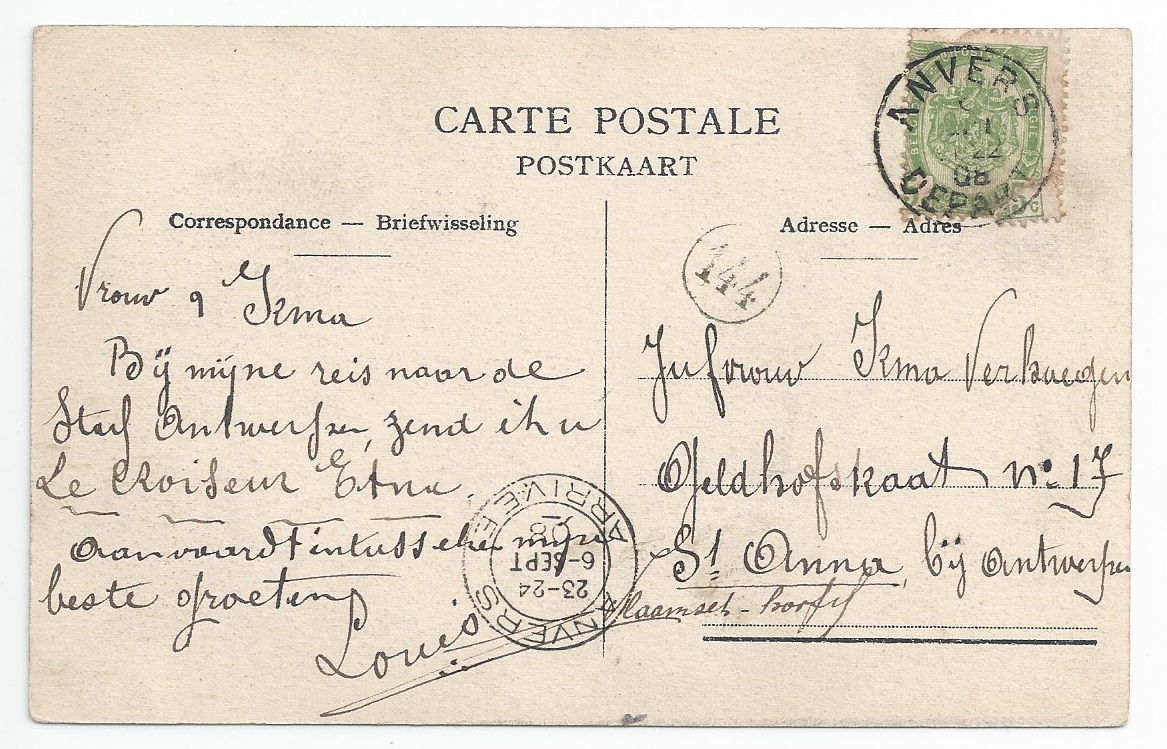 CARTE POSTALE
POSTKAART
Correspondance — Briefwisseling
Vrouw Irma
Bÿ mÿne reis naar de
Antwerpen, zend ik u
Le Croiseur Etna.
aanvaardt intusschen mÿne
beste groeten
Louis
Adresse — Adres
ANVERS
22
08
DEPART
144
Jufvrouw Irma Verhaegen
No 17
St Anna, bÿ Antwerpen
ARRIVEE
08
6-SEPT
23-24
ANVERS